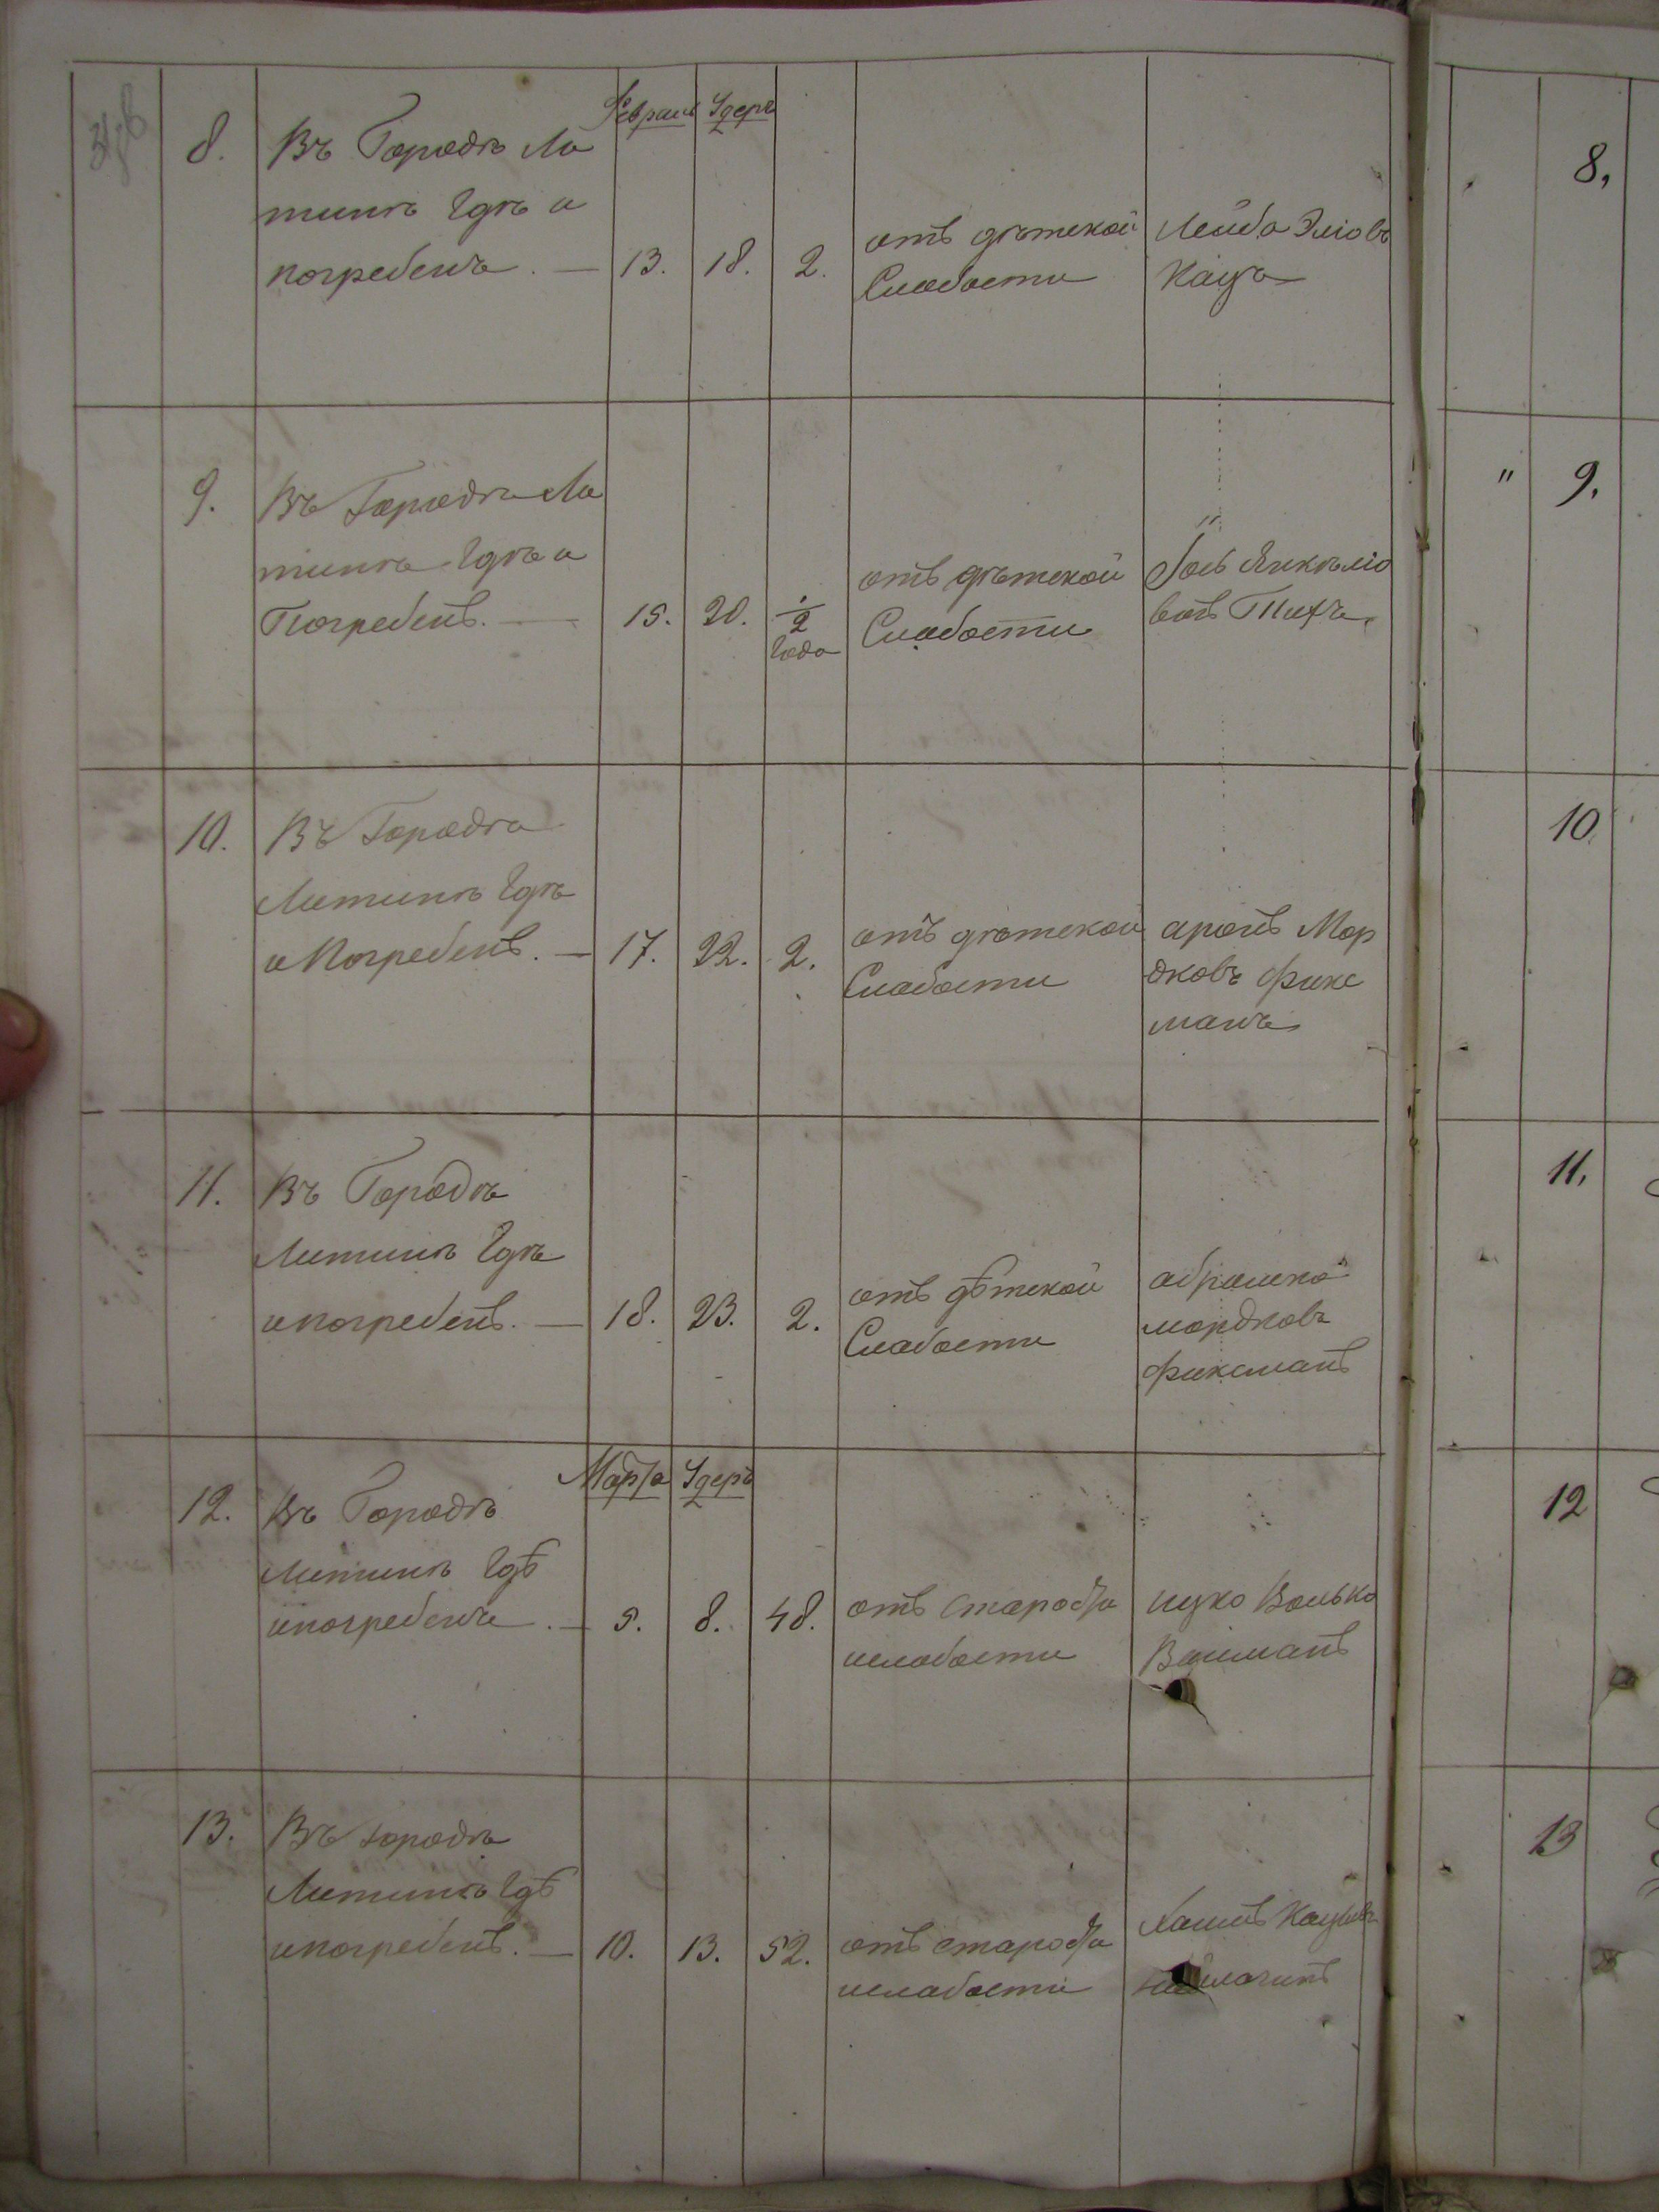 Февраль Удеръ
8. Въ Городѣ Ли
тинѣ Гдѣ и
погребенъ. — 13. 18. 2. отъ дѣтской Слабости Лейба Эліовъ Кацъ
9. Въ Городѣ Ли
тинѣ Гдѣ и
Погребенъ. — 15. 20. 1/2 Года отъ дѣтской Слабости Іось Янкѣліо
10. Въ Городѣ
Литинѣ Гдѣ
и Погребенъ. — 17. 22. 2. отъ дѣтской Слабости аронъ Мор
дковъ Фикс
манъ
11. Въ Городѣ
Литинѣ Гдѣ
и погребенъ. — 18. 23. 2. отъ дѣтской Слабости абрамко
мордковъ
фиксманъ
Марта Удеръ
12. Въ Городѣ
Литинѣ Гдѣ
и погребенъ. — 5. 8. 48. отъ старости и слабости ицко Волько
Вайсманъ
13. Въ городѣ
Литинѣ Гдѣ
и погребенъ. — 10. 13. 52. отъ старости и слабости Хаимъ
8,
" 9,
10
11,
12
13